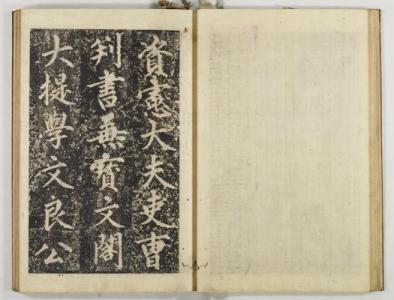 資憲大夫吏曹
判書兼寶文閣
大提學文良公